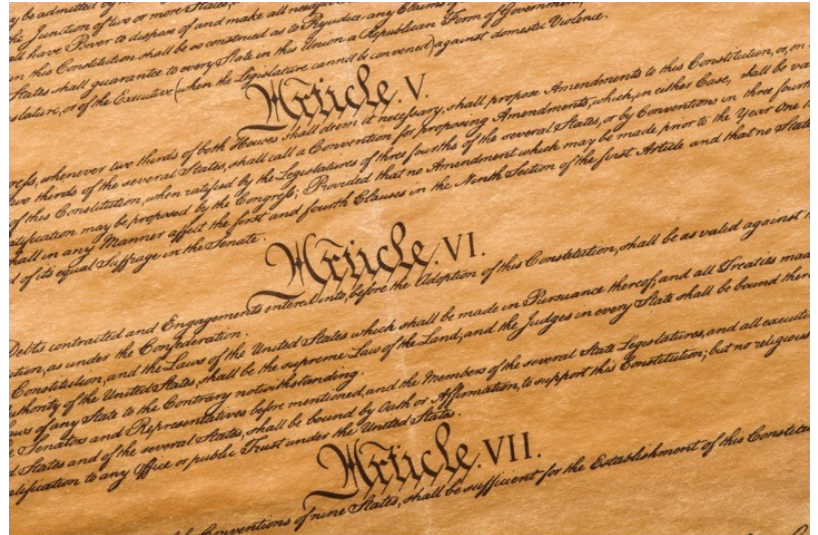 y be admitted by
the Junction of two or more States,
all have Power to dispose of and make all
n this Constitution shall be so construed as to Prejudice any Claims
States shall guarantee to every State in this Union a Republican Form of Government,
slature, or of the Executive (when the Legislature cannot be convened) against domestic Violence.
Article. V.
ress, whenever two thirds of both Houses shall deem it necessary, shall propose Amendments to this Constitution, or, on
two thirds of the several States, shall call a Convention for proposing Amendments, which, in either Case, shall be va
of this Constitution, when ratified by the Legislatures of three fourths of the several States, or by Conventions in three fourth
atification may be proposed by the Congress; Provided that no Amendment which may be made prior to the Year One
hall in any Manner affect the first and fourth Clauses in the Ninth Section of the first Article and that no State
d of its equal Suffrage in the Senate.
Article. VI.
Debts contracted and Engagements entered into, before the Adoption of this Constitution, shall be as valid against
tion, as under the Confederation.
Constitution, and the Laws of the United States which shall be made in Pursuance thereof; and all Treaties mad
uthority of the United States, shall be the supreme Law of the Land; and the Judges in every State shall be bound there
aws of any State to the Contrary notwithstanding.
e Senators and Representatives before mentioned, and the Members of the several State Legislatures, and all executi
d States and of the several States, shall be bound by Oath or Affirmation, to support this Constitution; but no religious
alification to any Office or public Trust under the United States.
Article. VII.
Conventions of nine States, shall be sufficient for the Establishment of this Constitu